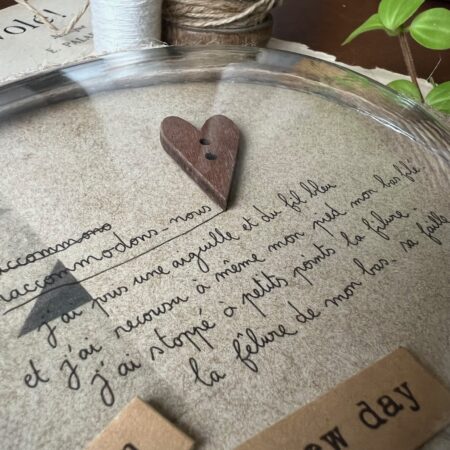 volé!
E. PA
accommons
raccommodons-nous
j'ai pris une aiguille et du fil bleu
et j'ai recousu à même mon pied mon bas filé
j'ai stoppé à petits points la fêlure.
la fêlure de mon bas, sa faille
ew day